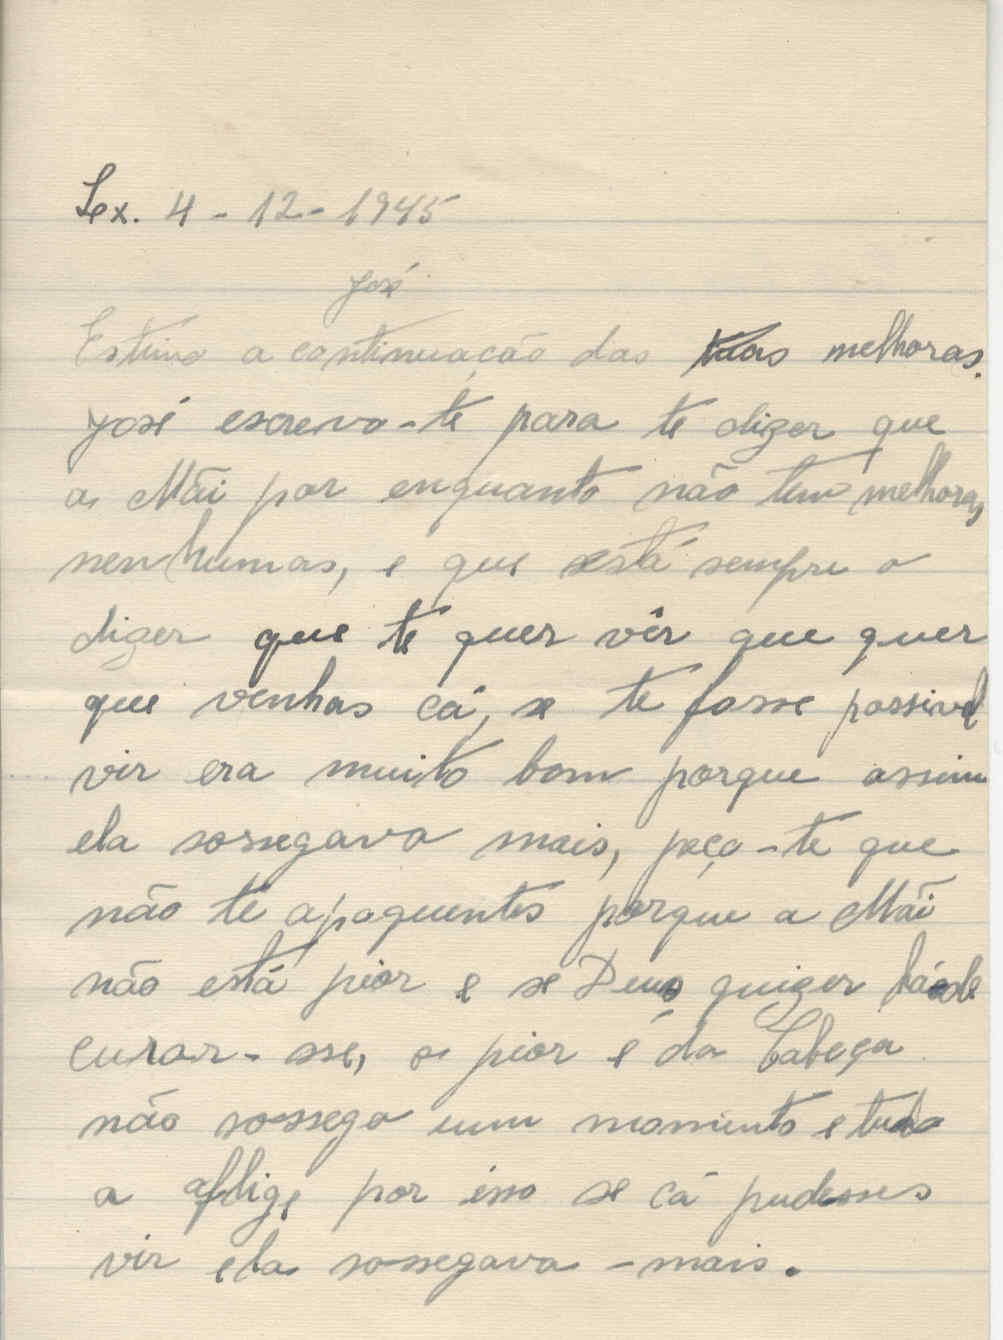 Lx. 4-12-1945
José
Estimo a continuação das tuas melhoras.
José escrevo-te para te dizer que
a Mãi por enquanto não tem melhoras,
nenhumas, e que está sempre a
dizer que te quer vêr que quer
que venhas cá, se te fosse possivel
vir era muito bom porque assim
ela sossegava mais, peço-te que
não te apoquentes porque a Mãi
não está pior e se Deus quizer háde
curar-sse, o pior é da Cabeça
não sossega um momento e tudo
a aflige por isso se cá pudesses
vir ela sossegava-mais.